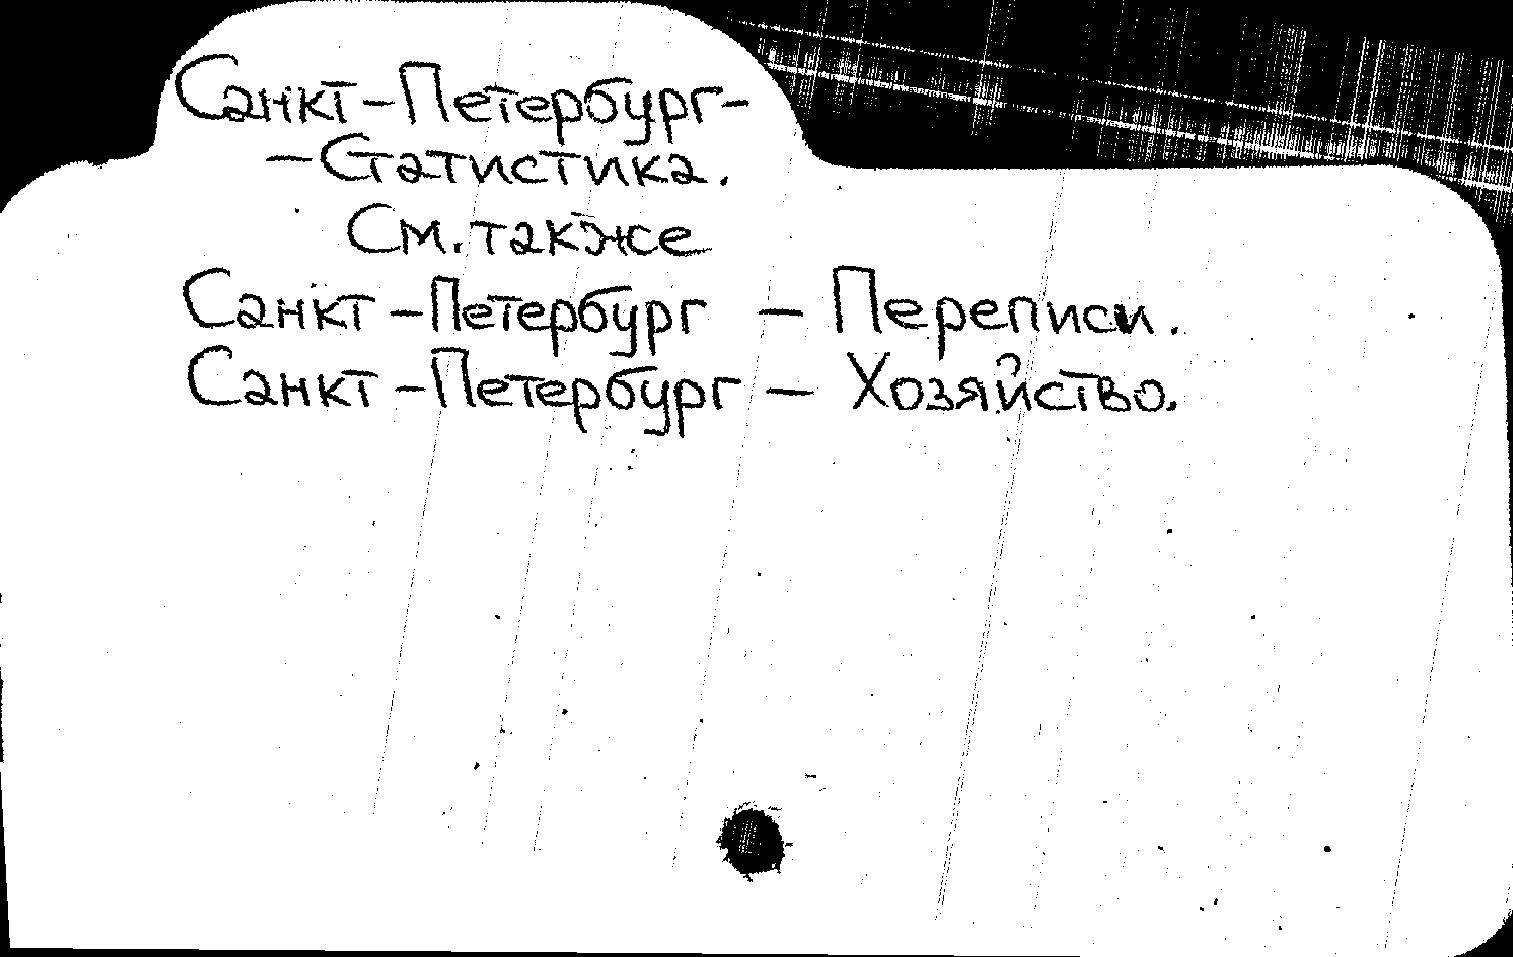 Санкт-Петербург-
-Статистика.
См. также
Санкт-Петербург - Переписи.
Санкт-Петербург - Хозяйство.